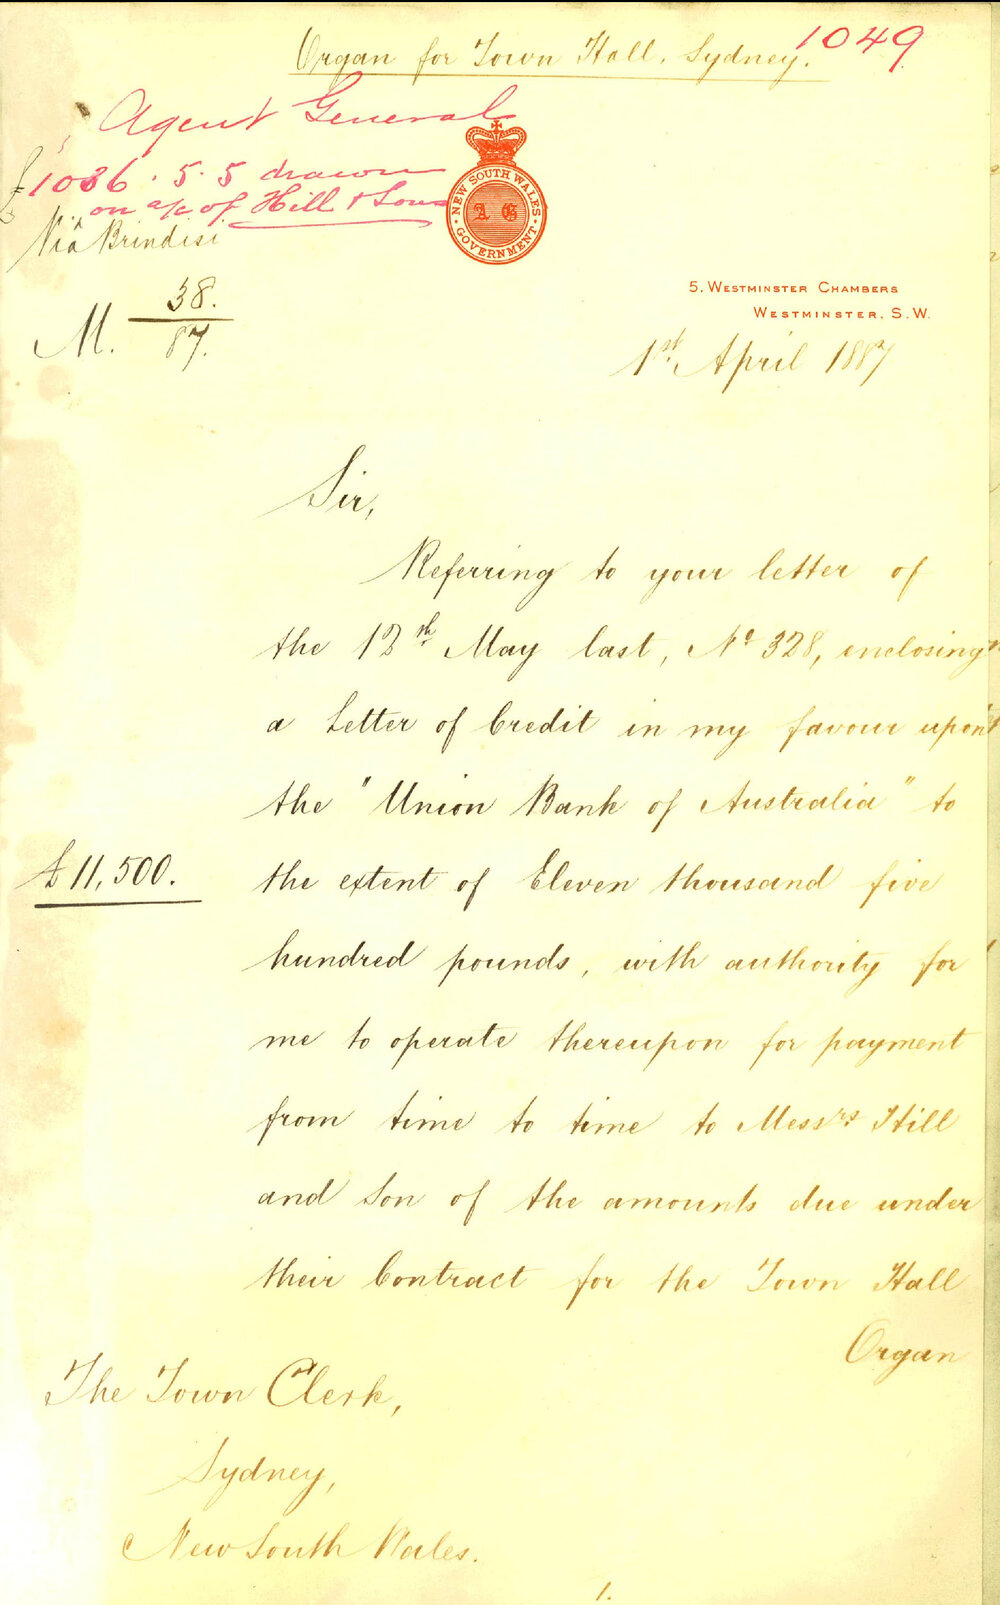 Organ for Town Hall, Sydney.
1049
Agent General
£1086.5.5 drawn
on a/c of Hill & Sons
Viâ Brindisi
NEW SOUTH WALES
A G
GOVERNMENT
M. 38.
87.
5. WESTMINSTER CHAMBERS
WESTMINSTER. S.W.
1st April 1887
Sir,
Referring to your letter of
the 12th May last, No 328, enclosing
a Letter of Credit in my favour upon
the "Union Bank of Australia" to
£11,500.
the extent of Eleven thousand five
hundred pounds, with authority for
me to operate thereupon for payment
from time to time to Messrs Hill
and Son of the amounts due under
their Contract for the Town Hall
Organ
The Town Clerk,
Sydney,
New South Wales.
1.